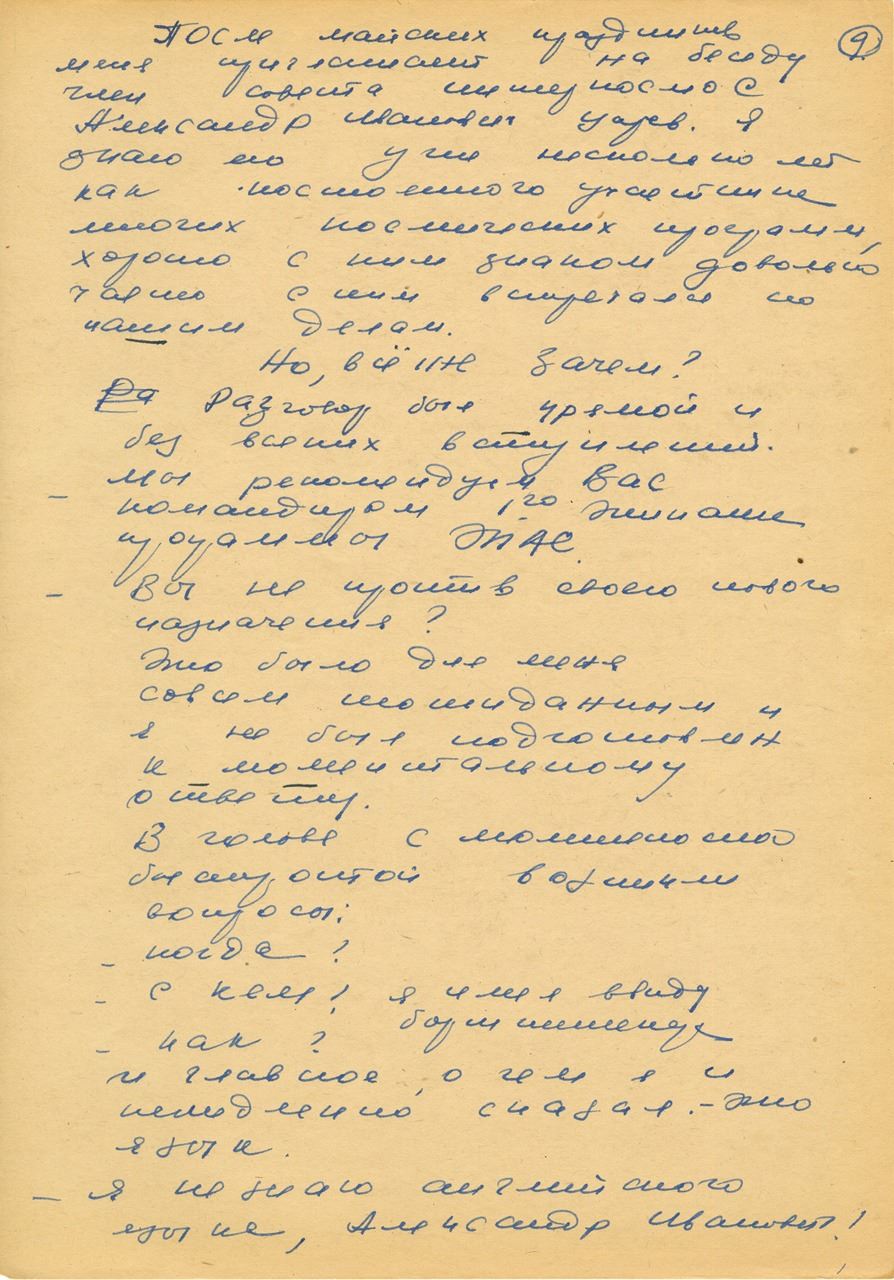 9
После майских праздников
меня приглашают на беседу
член совета интеркосмос
Александр Иванович Царев. Я
знаю его уже несколько лет
как постоянного участника
многих космических программ,
хорошо с ним знаком довольно
часто с ним встречался по
нашим делам.
Но, всё же зачем?
Ра Разговор был прямой и
без всяких вступлений.
– Мы рекомендуем Вас
командиром 1го экипажа
программы ЭПАС
– Вы не против своего нового
назначения?
Это было для меня
совсем неожиданным и
я не был подготовлен
к моментальному
ответу.
В голове с молниеносной
быстротой возникли
вопросы:
– когда?
– с кем? я имел ввиду
бортинженера
– как?
и главное, о чем я и
немедленно сказал. – это
язык.
– Я не знаю английского
языка, Александр Иванович!